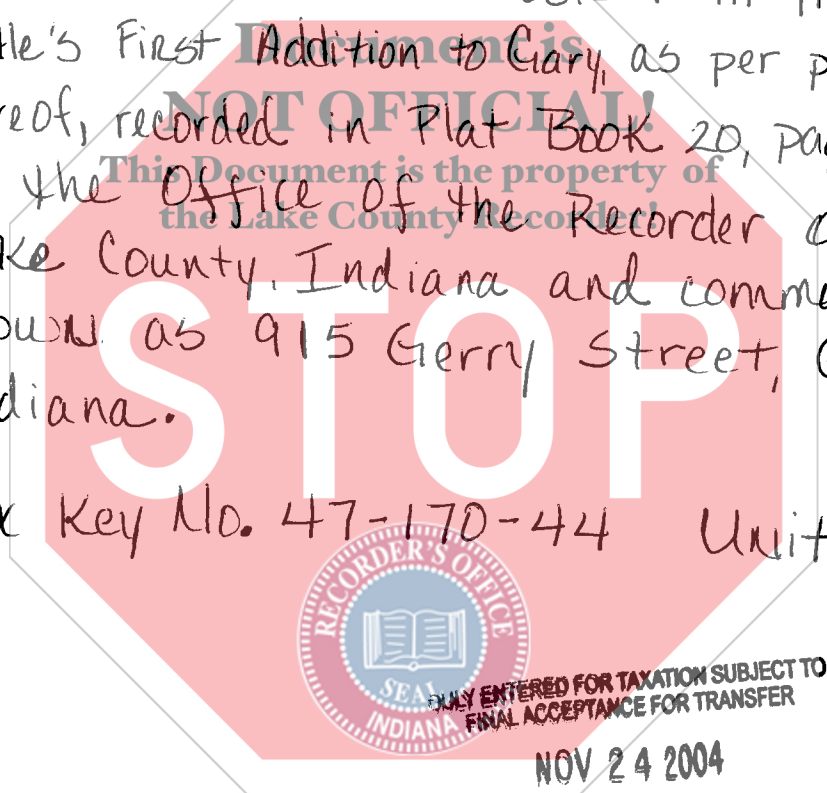 tle's First Addition to Gary, as per p
reof, recorded in Plat Book 20, pa
the Office of the Recorder o
ke County, Indiana and comme
own as 915 Gerry Street,
diana.
Key No. 47-170-44 Unit
Document is
NOT OFFICIAL!
This Document is the property of
the Lake County Recorder!
STOP
RECORDER'S OFFICE
SEAL
INDIANA
DULY ENTERED FOR TAXATION SUBJECT TO
FINAL ACCEPTANCE FOR TRANSFER
NOV 24 2004